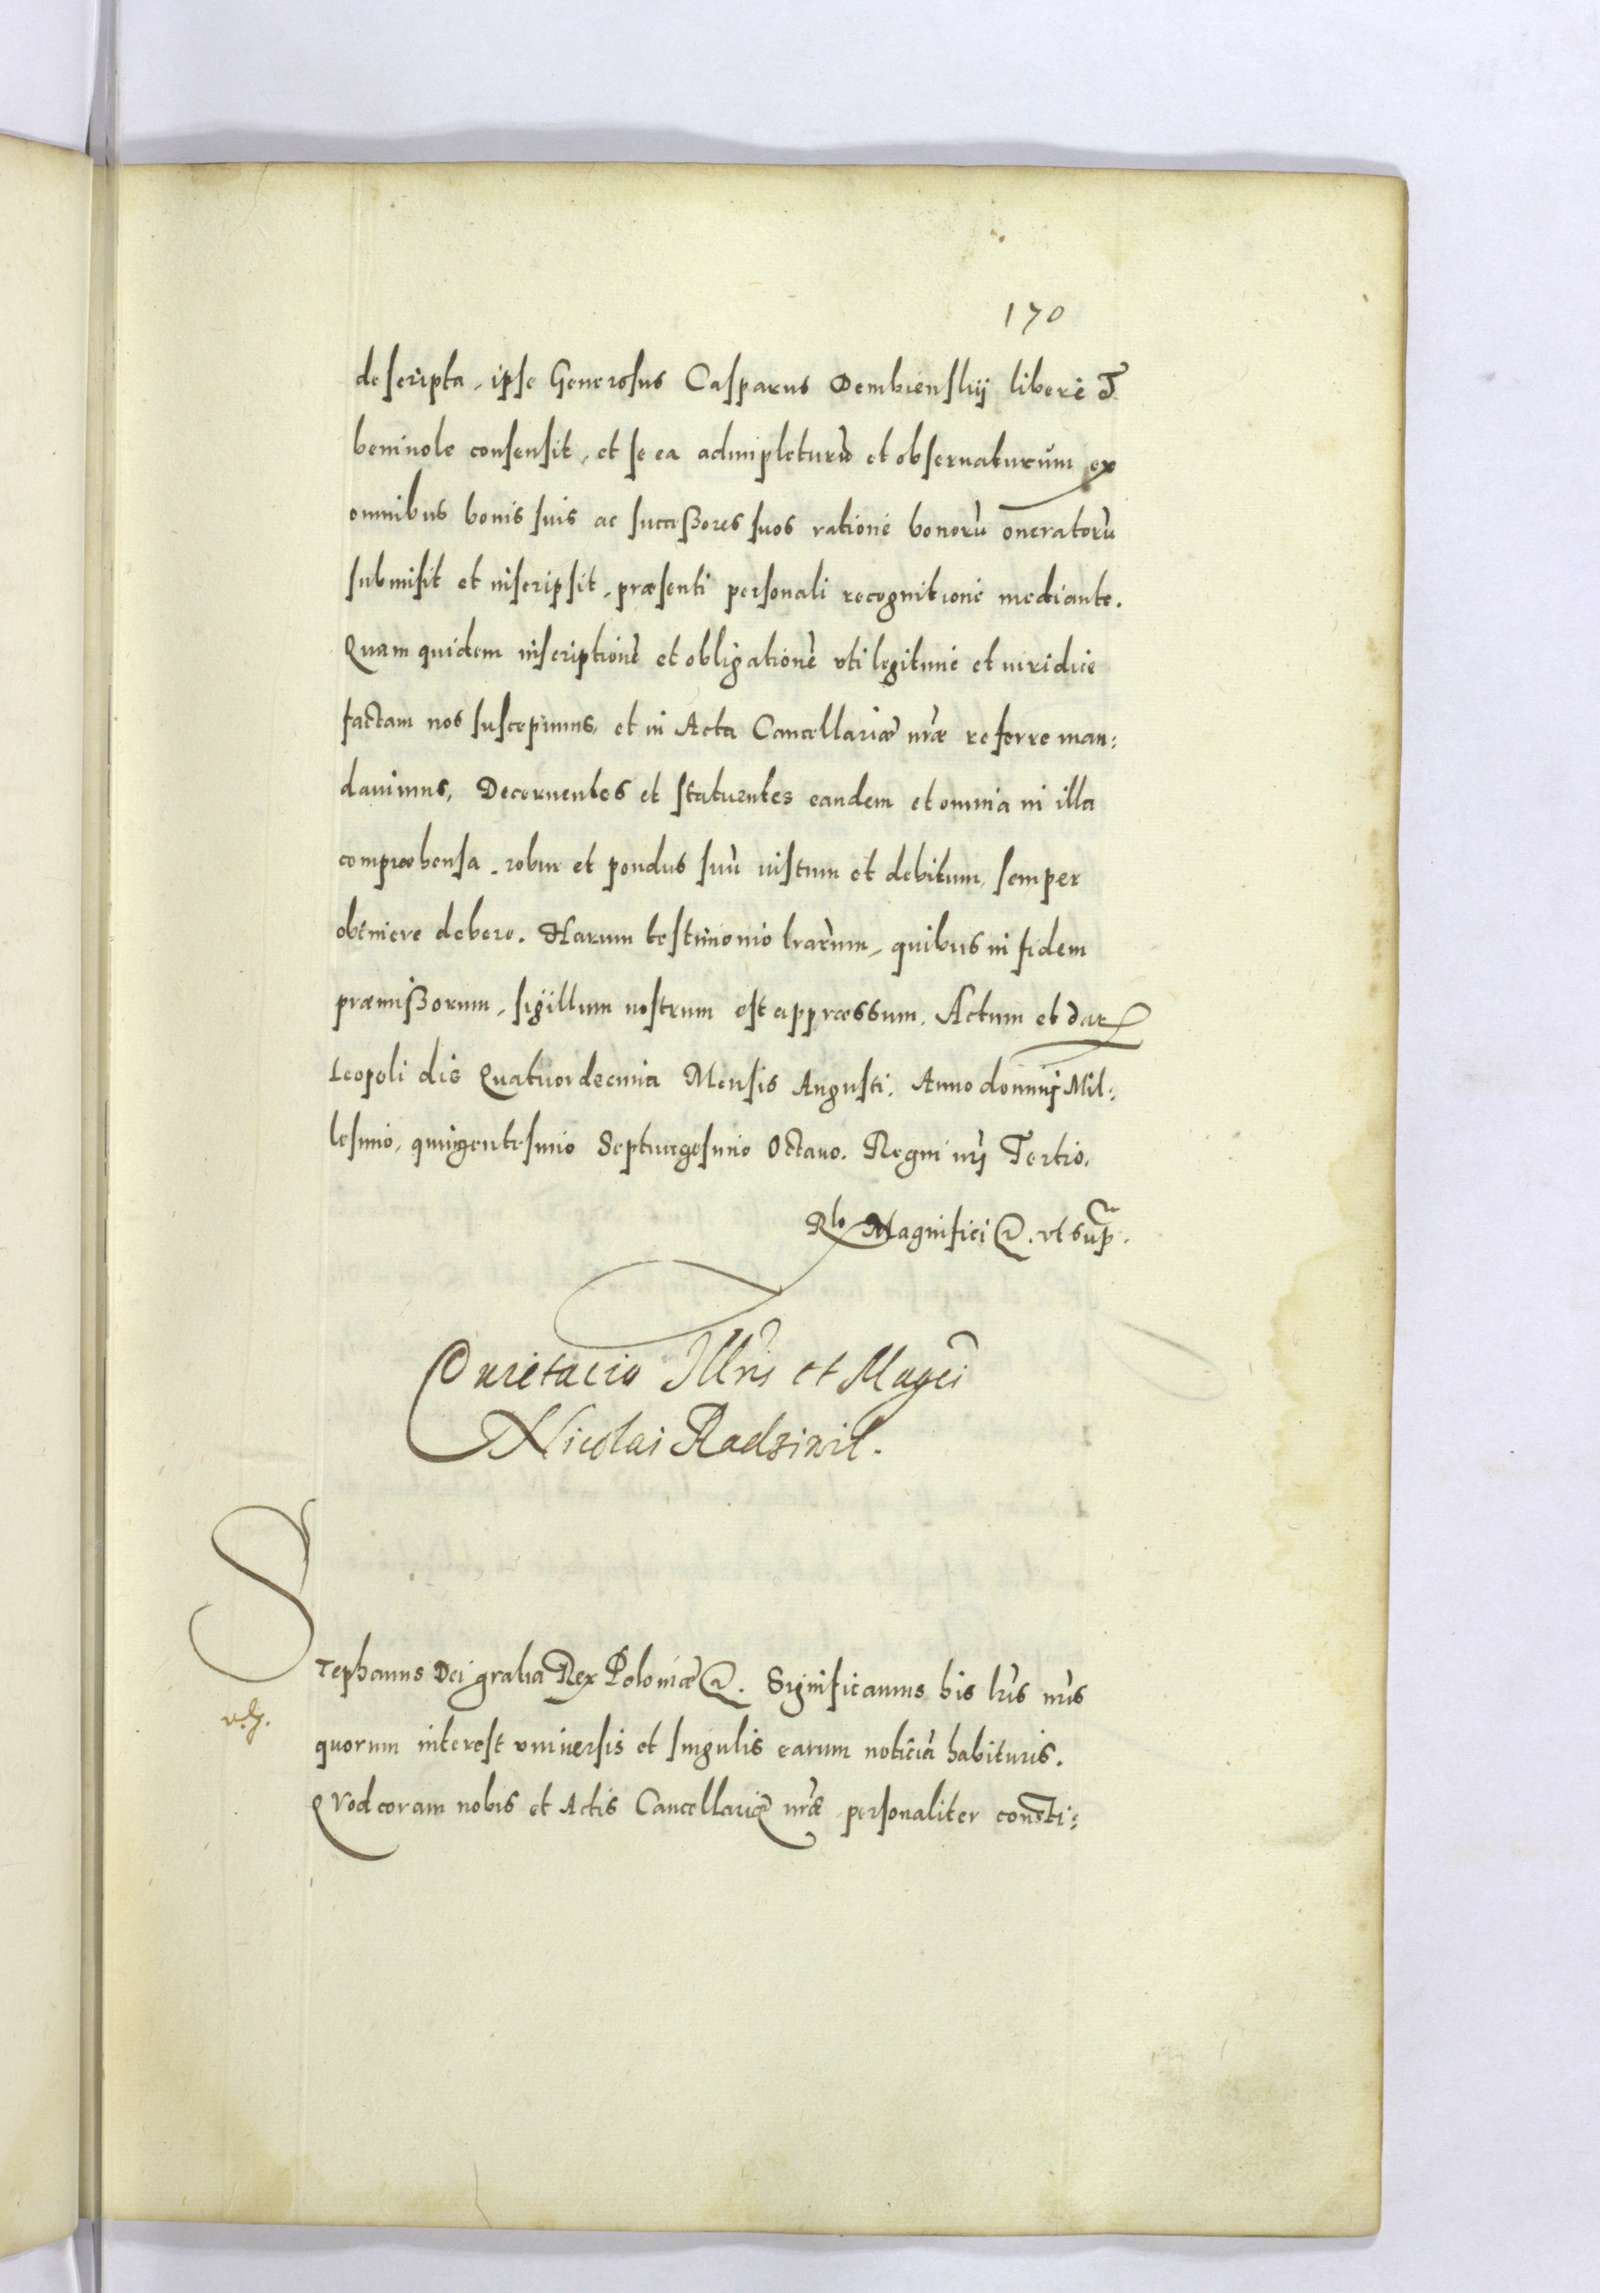 170
descripta, ipse Generosus Casparus Dembienskij liberè et
beniuole consensit, et se ea adimpleturũ et obseruaturum ex
omnibus bonis suis ac successores suos rationè bonorũ oneratorũ
submisit et inscripsit, præsenti personali recognitionè mediante.
Quam quidem inscriptionẽ et obligationẽ vti legitimè et iuridicè
factam nos suscepimus, et in Acta Cancellariæ nr̃æ referre man:
dauimus, Decernentes et statuentes eandem et omnia in illa
compræhensa, robur et pondus suũ iustum et debitum, semper
obtinere debere. Harum testimonio lr̃arum, quibus in fidem
præmissorum, sigillum nostrum est appræssum. Actum et dat̃
Leopoli die Quatuordecima Mensis Augusti. Anno domini Mil:
lesimo, quingentesimo Septuagesimo Octauo. Regni nr̃i Tertio.
Rlo Magnifici &. vt sup̃.
Quietacio Illr̃is et Magci
Nicolai Radziwil.
Stephanus Dei gratia Rex Poloniæ &. Significamus his lr̃is nr̃is
quorum interest vniuersis et singulis earum noticiã habituris.
Quod coram nobis et Actis Cancellariæ nr̃æ personaliter consti: